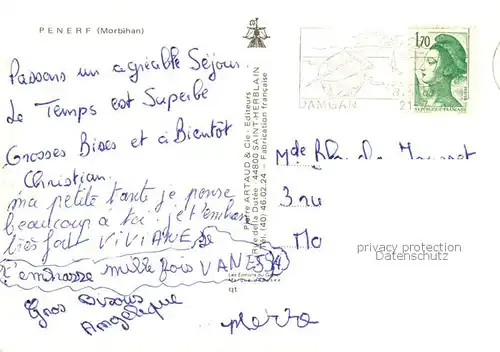 PENERF (Morbihan)
1,70
RÉPUBLIQUE FRANÇAISE
DAMGAN
21-
Passons un agréable Séjour.
Le Temps est Superbe
Grosses Bises et à Bientôt
Christian.
ma petite tante je pense
beaucoup a toi. je t'embrasse
très fort VIVIANE je
t'embrasse mille fois VANESSA
Gros Bisous
Angélique
pierre
Pierre ARTAUD & Cie - Editeurs
Rue de la Durée - 44800 SAINT-HERBLAIN
Tél. (40) 46.02.24 - Fabrication française
Mde Blanche
3 rue
Mo
privacy protection
Datenschutz